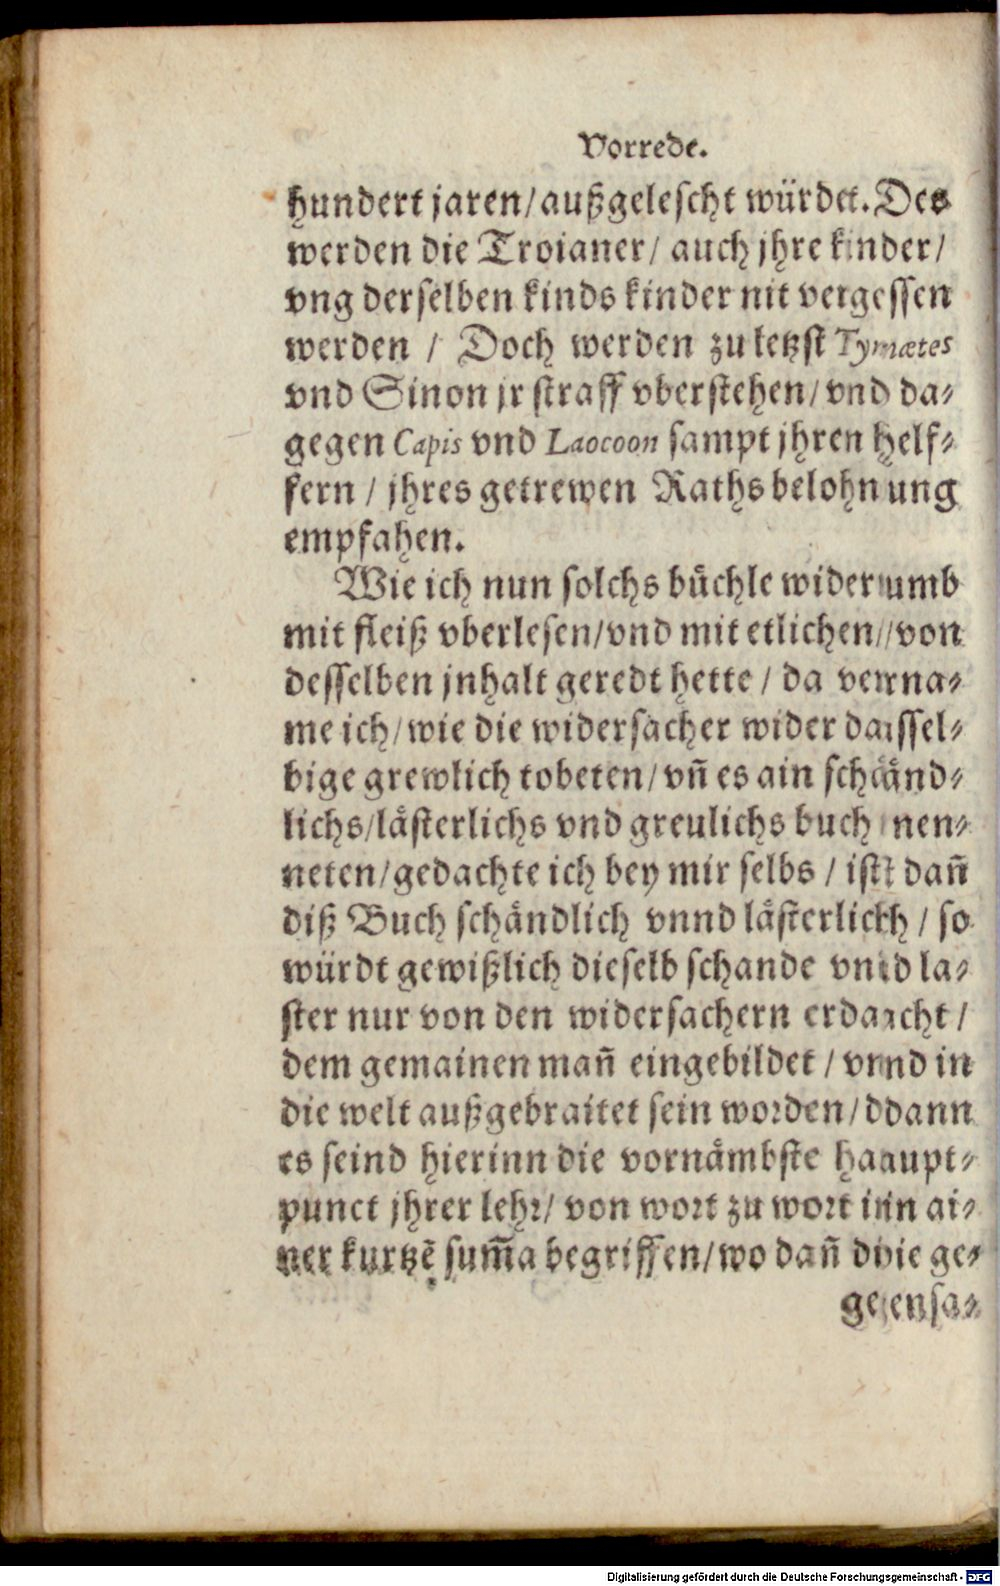 Vorrede.
hundert jaren/außgelescht würdet. Des
werden die Troianer/ auch jhre kinder/
vng derselben kinds kinder nit vergessen
werden / Doch werden zu letzst Tymætes
vnd Sinon jr straff vberstehen/ vnd da⸗
gegen Capis vnd Laocoon sampt jhren helf⸗
fern / jhres getrewen Raths belohnung
empfahen.
Wie ich nun solchs bůchle widerumb
mit fleiß vberlesen/vnd mit etlichen/ von
desselben jnhalt geredt hette / da verna⸗
me ich/wie die widersacher wider dassel⸗
bige grewlich tobeten/ vn̄ es ain schaͤnd⸗
lichs/laͤsterlichs vnd greulichs buch nen⸗
neten/gedachte ich bey mir selbs / ist dan̄
diß Buch schaͤndlich vnnd laͤsterlich / so
würdt gewißlich dieselb schande vnd la⸗
ster nur von den widersachern erdacht /
dem gemainen man̄ eingebildet / vnnd in
die welt außgebraitet sein worden/ dann
es seind hierinn die vornaͤmbste haupt⸗
punct jhrer lehr/ von wort zu wort inn ai⸗
ner kurtzē sum̄a begriffen/wo dan̄ die ge⸗
gensa⸗
Digitalisierung gefördert durch die Deutsche Forschungsgemeinschaft - DFG